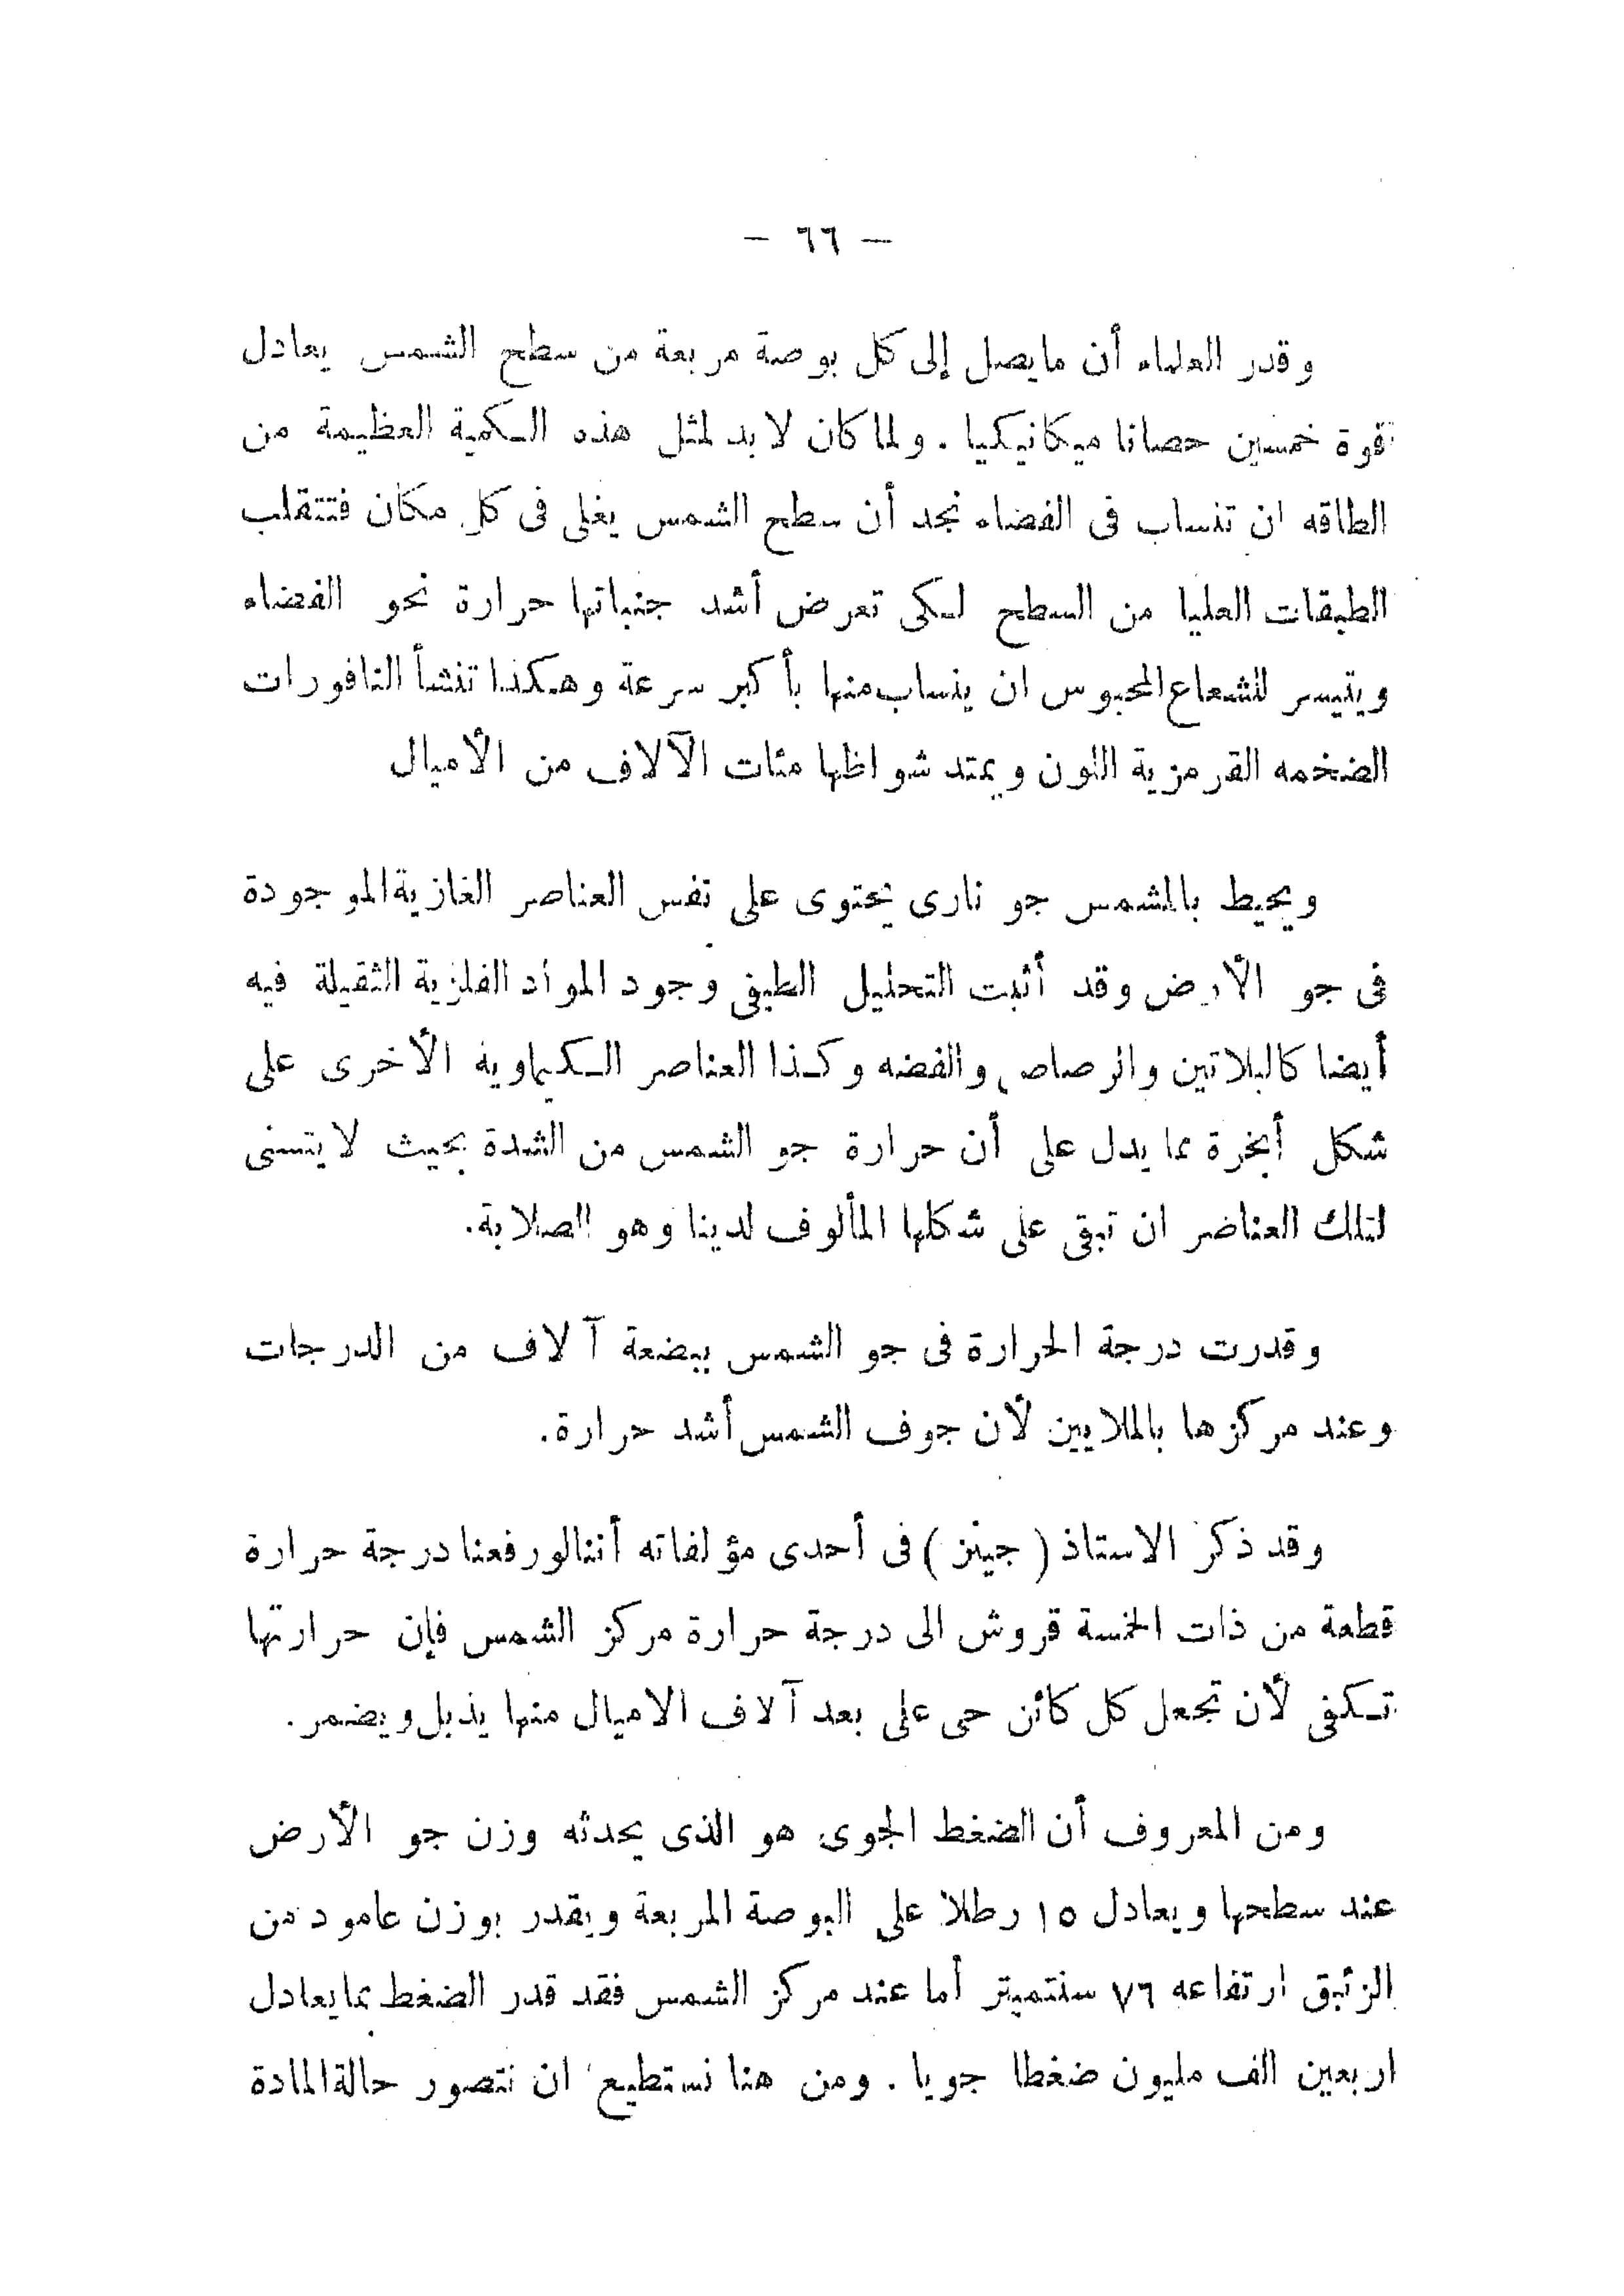 — ٦٦ —
وقدر العلماء أن ما يصل إلى كل بوصة مربعة من سطح الشمس يعادل
قوة خمسين حصانا ميكانيكيا . ولما كان لا بد لمثل هذه الكمية العظيمة من
الطاقه ان تنساب فى الفضاء نجد أن سطح الشمس يغلى فى كل مكان فتتقلب
الطبقات العليا من السطح لكى تعرض أشد جنباتها حرارة نحو الفضاء
ويتيسر للشعاع المحبوس ان ينساب منها بأكبر سرعة وهكذا تنشأ النافورات
الضخمه القرمزية اللون ويمتد شواظها مئات الآلاف من الأميال
ويحيط بالشمس جو نارى يحتوى على نفس العناصر الغازية الموجودة
فى جو الأرض وقد أثبت التحليل الطيفى وجود المواد الفلزية الثقيلة فيه
أيضا كالبلاتين والرصاص والفضه وكذا العناصر الكيماوية الأخرى على
شكل أبخرة مما يدل على أن حرارة جو الشمس من الشدة بحيث لا يتسنى
لتلك العناضر ان تبقى على شكلها المألوف لدينا وهو الصلابة.
وقدرت درجة الحرارة فى جو الشمس ببضعة آلاف من الدرجات
وعند مركزها بالملايين لأن جوف الشمس أشد حرارة.
وقد ذكر الاستاذ ( جينز ) فى أحدى مؤلفاته أننا لو رفعنا درجة حرارة
قطعة من ذات الخمسة قروش الى درجة حرارة مركز الشمس فإن حرارتها
تكفى لأن تجعل كل كائن حى على بعد آلاف الاميال منها يذبل ويضمر.
ومن المعروف أن الضغط الجوى هو الذى يحدثه وزن جو الأرض
عند سطحها ويعادل ١٥ رطلا على البوصة المربعة ويقدر بوزن عامود من
الزئبق ارتفاعه ٧٦ سنتميتر أما عند مركز الشمس فقد قدر الضغط بما يعادل
اربعين الف مليون ضغطا جويا . ومن هنا نستطيع ان نتصور حالة المادة